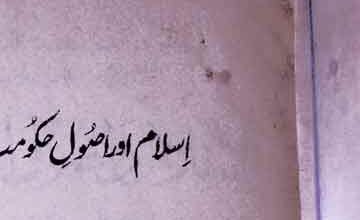 اِسلام اور اصُولِ حکُومت